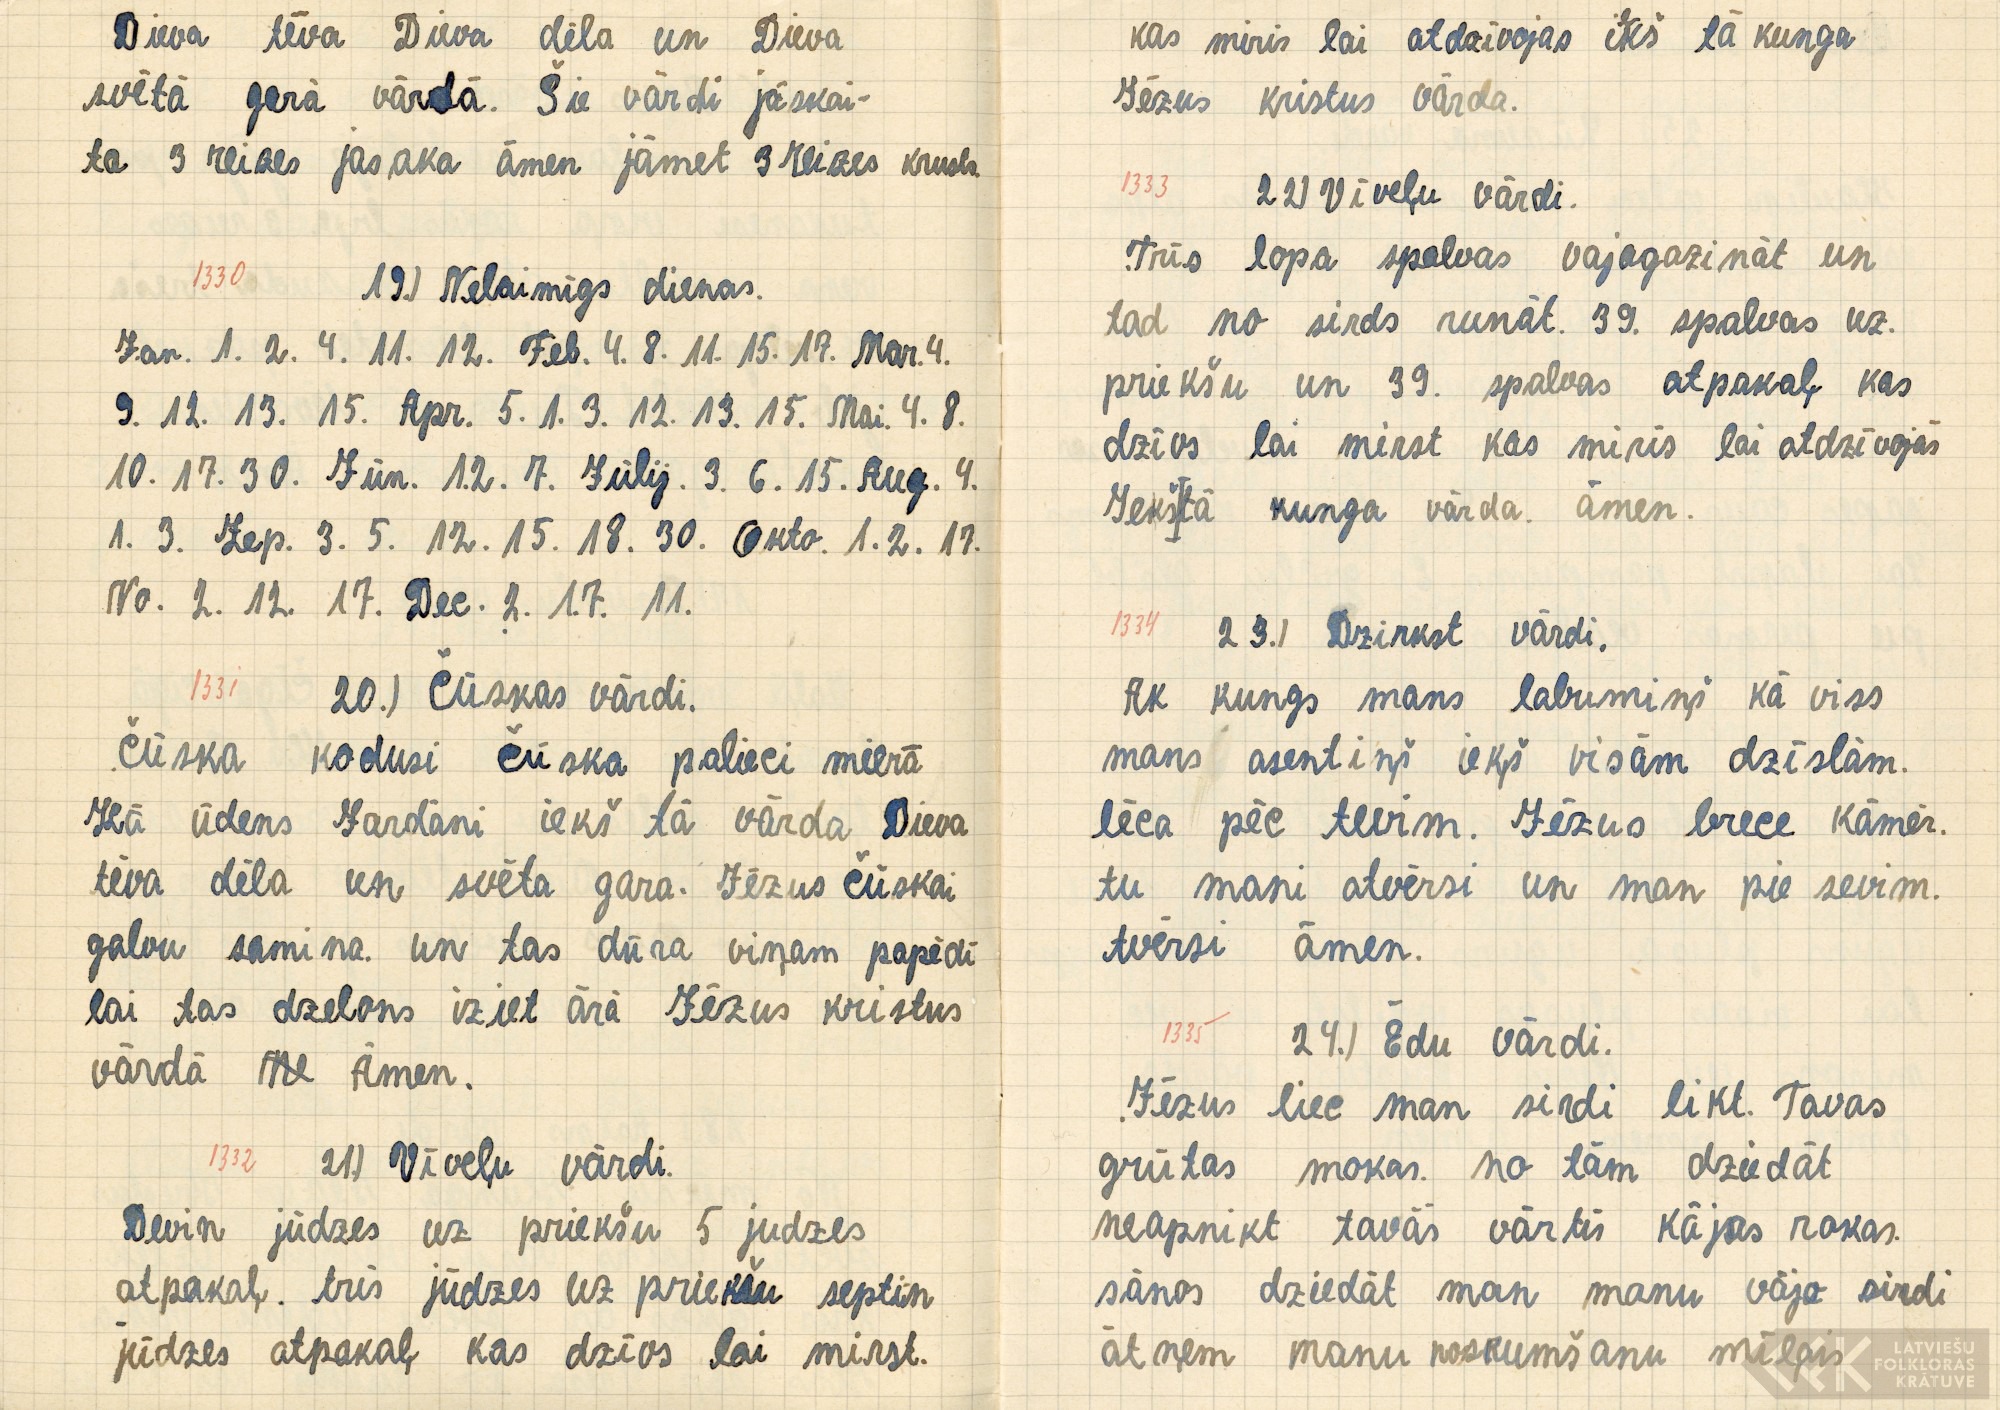 Dieva tēva Dieva dēla un Dieva
svētā gara vārdā. Šie vārdi jāskai-
ta 3 reizes jasaka āmen jāmet 3 reizes krusts.
1330 19.) Nelaimīgs dienas.
Jan. 1. 2. 4. 11. 12. Feb. 4. 8. 11. 15. 17. Mar. 4.
9. 12. 13. 15. Apr. 5. 1. 3. 12. 13. 15. Mai. 4. 8.
10. 17. 30. Jūn. 12. 7. Jūlij. 3. 6. 15. Aug. 4.
1. 3. Zep. 3. 5. 12. 15. 18. 30. Okto. 1. 2. 17.
No. 2. 12. 17. Dec. 2. 17. 11.
1331 20.) Čūskas vārdi.
Čūska kodusi čūska palieci mierā
Kā ūdens Jardāni iekš tā vārda Dieva
tēva dēla un svēta gara. Jēzus čūskai
galvu samina. un tas dūra viņam papēdi
lai tas dzelons iziet ārā Jēzus kristus
vārdā Āmen.
1332 21.) Vīveļu vārdi.
Devin jūdzes uz priekšu 5 judzes
atpakaļ. trīs jūdzes uz priekšu septiņ
jūdzes atpakaļ kas dzīvs lai mirst.
kas miris lai atdzīvojas iekš tā kunga
Jēzus kristus vārda.
1333 22) Vīveļu vārdi.
Trīs lopa spalvas vajagazināt un
tad no sirds runāt. 39. spalvas uz.
priekšu un 39. spalvas atpakaļ kas
dzīvs lai mirst kas miris lai atdzīvojās
Jekš tā kunga vārda. āmen.
1334 23.) Dzirkst vārdi.
Ak kungs mans labumiņš kā viss
mans asentiņš iekš visām dzīslām.
lēca pēc tevim. Jēzus brece kāmēr.
tu mani atvērsi un man pie sevim.
tvērsi āmen.
1335 24.) Ēdu vārdi.
Jēzus liec man sirdi likt. Tavas
grūtas mokas. no tām dziedāt
neapnikt tavās vārtīs kājas rokas.
sānos dziedāt man manu vāja sirdi
ātņem manu noskumšanu mīļais
LATVIEŠU
FOLKLORAS
KRĀTUVE